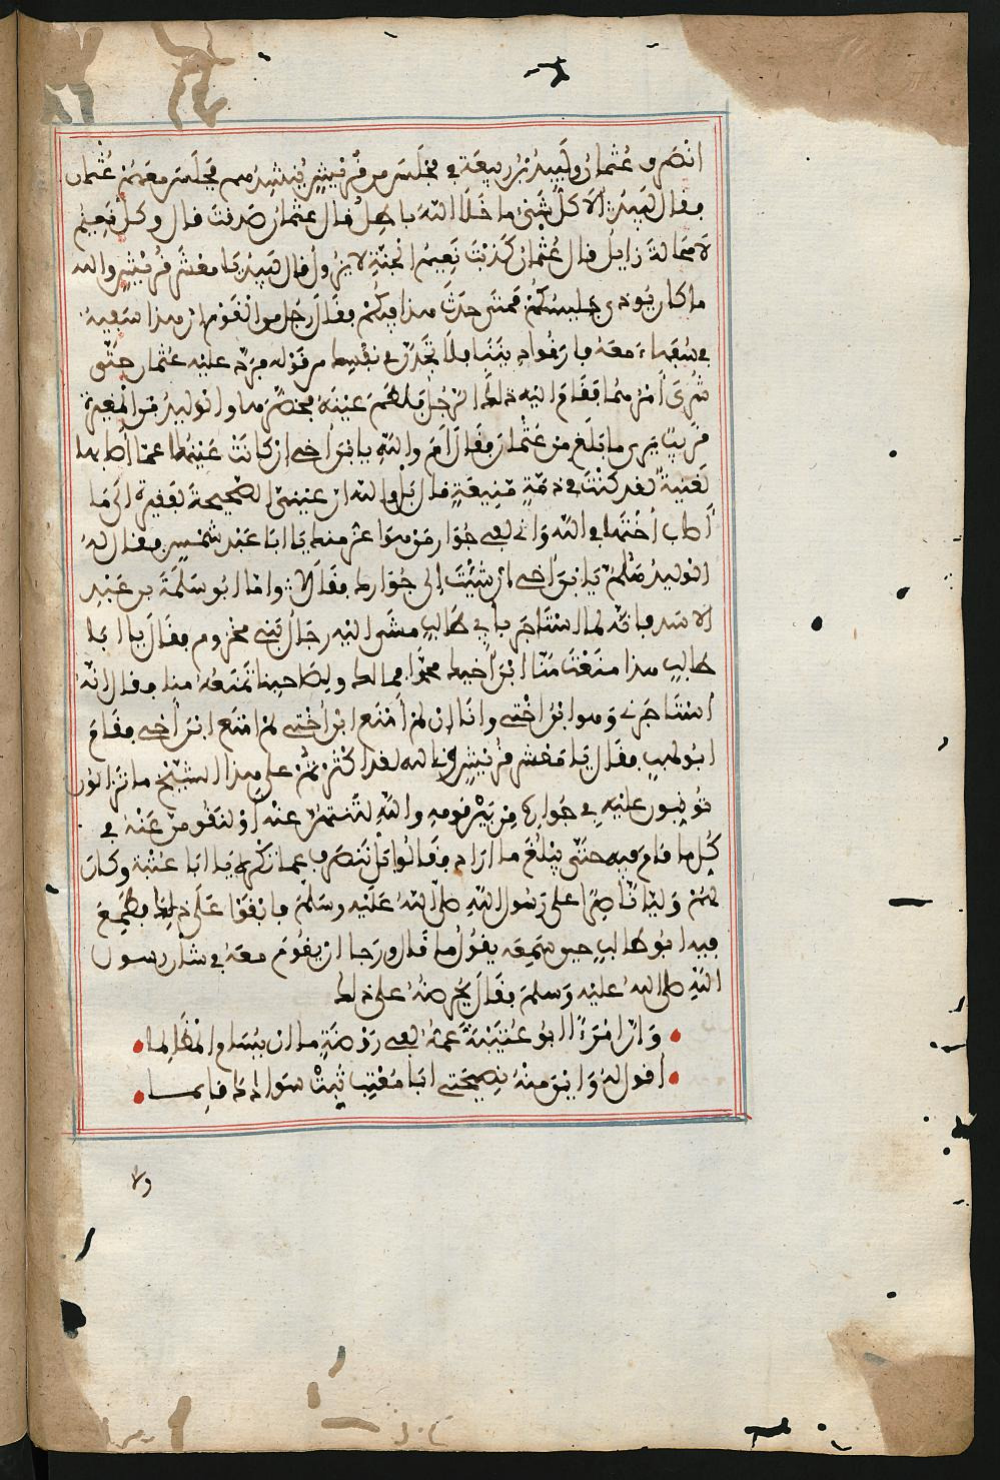 انصرف عثمان ولبيد بن ربيعة في مجلس من قريش ينشدهم فجلس معهم عثمان
فقال لبيد الا كل شيء ما خلا الله باطل قال عثمان صدقت قال وكل نعيم
لا محالة زايل قال عثمان كذبت نعيم الجنة لا يزول قال لبيد يا معشر قريش والله
ما كان يوذى جليسكم فمتى حدث هذا فيكم فقال رجل من القوم ان هذا سفيه
في سفهاء معه فارقوا ديننا فلا تجدن في نفسك من قوله فرد عليه عثمان حتى
شرى امرهما فقام اليه ذلك الرجل فلطم عينه فخضرها والوليد بن المغيرة
قريب يرى ما بلغ من عثمان فقال اما والله يا بن اخي ان كانت عينك عما اصابها
لغنية لقد كنت في ذمة منيعة قال بل والله ان عيني الصحيحة لفقيرة الى ما
اصاب اختها في الله واني لفي جوار من هو اعز منك يا ابا عبد شمس فقال له
الوليد هلم يا بن اخي ان شئت الى جوارك فقال لا واما ابو سلمة بن عبد
الاسد فانه لما استجار بابي طالب مشى اليه رجال بني مخزوم فقال يا ابا
طالب هذا منعت منا ابن اخيك محمدا فما لك ولصاحبنا تمنعه منا فقال انه
استجارني وهو ابن اختي وانا ان لم امنع ابن اختي لم امنع ابن اخي فقام
ابو لهب فقال يا معشر قريش والله لقد اكثرتم على هذا الشيخ ما تزالون
توثبون عليه في جواره من بين قومه والله لتنتهن عنه او لنقومن عنه في
كل ما قام فيه حتى يبلغ ما اراد فقالوا بل ننصرف عما تكره يا ابا عتبة وكان
لهم وليا ناصرا على رسول الله صلى الله عليه وسلم فابقوا على ذلك فطمع
فيه ابو طالب حين سمعه يقول ما قال ورجا ان يقوم معه في شان رسول
الله صلى الله عليه وسلم فقال يحرضه على ذلك
وان امرءا ابو عتيبة عمه لفي روضة ما ان يسام المظالما
اقول له واين منه نصيحتي ابا معتب ثبت سوادك قايما
ولا